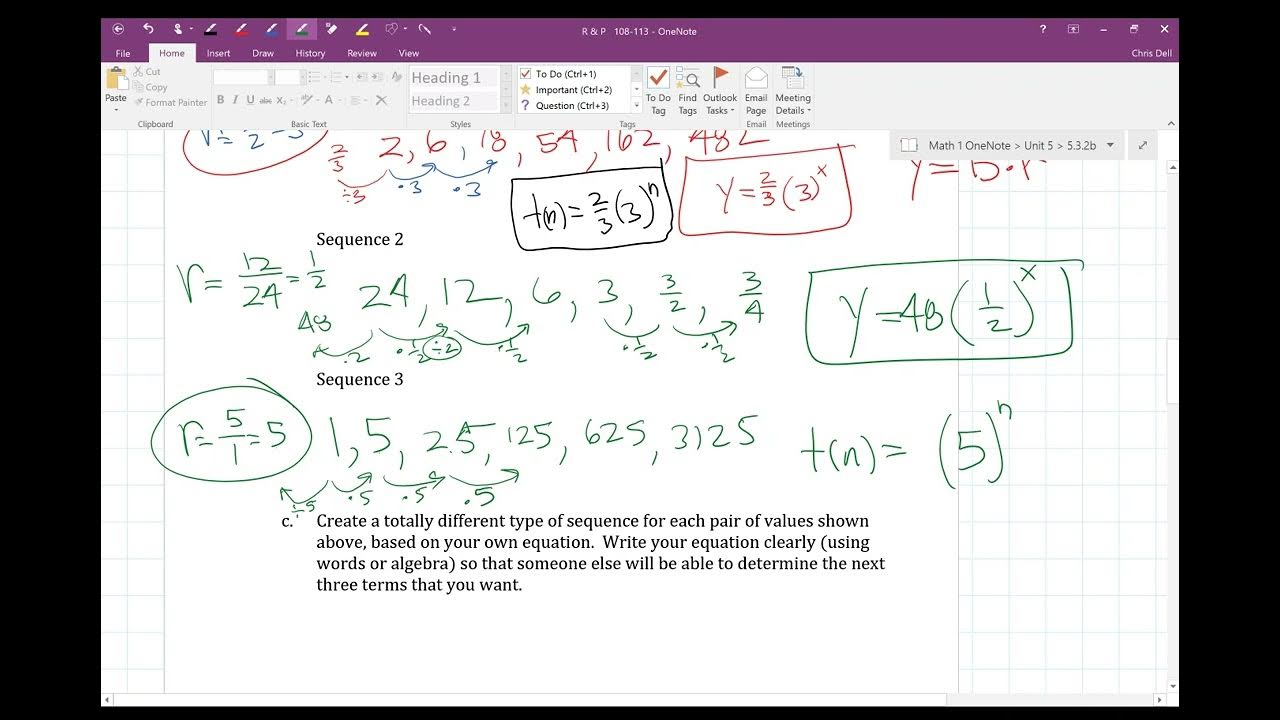 R & P 108-113 - OneNote
Chris Dell
File Home Insert Draw History Review View
Paste
Cut
Copy
Format Painter
Clipboard
B I U abc X₂ A
Basic Text
Heading 1
Heading 2
Styles
To Do (Ctrl+1)
Important (Ctrl+2)
Question (Ctrl+3)
To Do Tag
Find Tags
Outlook Tasks
Tags
Email Page
Email
Meeting Details
Meetings
Math 1 OneNote > Unit 5 > 5.3.2b
2/3 2, 6, 18, 54, 162, 482
÷3 ·3 ·3
t(n) = 2/3 (3)^n
y = 2/3 (3)^x
Sequence 2
r = 12/24 = 1/2 24, 12, 6, 3, 3/2, 3/4
y = 48 (1/2)^x
48
·2 ·1/2 ÷2 ·1/2 ·1/2 ·1/2
Sequence 3
r = 5/1 = 5 1, 5, 25, 125, 625, 3125 t(n) = (5)^n
÷5 ·5 ·5 ·5
c. Create a totally different type of sequence for each pair of values shown
above, based on your own equation. Write your equation clearly (using
words or algebra) so that someone else will be able to determine the next
three terms that you want.